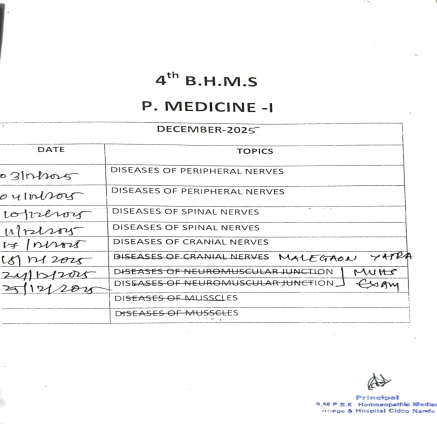 4th B.H.M.S
P. MEDICINE -I
DECEMBER-2025
DATE TOPICS
03/12/2025 DISEASES OF PERIPHERAL NERVES
04/12/2025 DISEASES OF PERIPHERAL NERVES
10/12/2025 DISEASES OF SPINAL NERVES
11/12/2025 DISEASES OF SPINAL NERVES
17/12/2025 DISEASES OF CRANIAL NERVES
18/12/2025 DISEASES OF CRANIAL NERVES MALEGAON YATRA
24/12/2025 DISEASES OF NEUROMUSCULAR JUNCTION MUHS
25/12/2025 DISEASES OF NEUROMUSCULAR JUNCTION EXAM
DISEASES OF MUSSCLES
DISEASES OF MUSSCLES
Principal
S.M.P.S.E. Homoeopathic Medical
College & Hospital Cidco